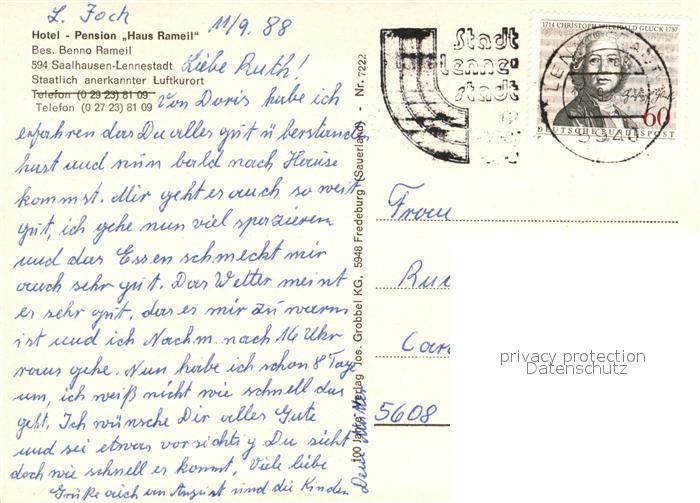 L. Foch 11/9. 88
Hotel - Pension „Haus Rameil"
Bes. Benno Rameil
594 Saalhausen-Lennestadt
Staatlich anerkannter Luftkurort
Telefon (0 29 23) 81 09
Telefon (0 27 23) 81 09
Liebe Ruth!
Von Doris habe ich
erfahren das Du alles gut überstanden
hast und nun bald nach Hause
kommst. Mir geht es auch so weit
gut, ich gehe nun viel spazieren
und das Essen schmeckt mir
auch sehr gut. Das Wetter meint
es sehr gut, das es mir zu warm
ist und ich Nachm. nach 16 Uhr
raus gehe. Nun habe ich schon 8 Tage
um, ich weiß nicht wie schnell das
geht. Ich wünsche Dir alles Gute
und sei etwas vorsichtig Du sieht
doch wie schnell es kommt. Viele liebe
Grüße auch an August und die Kinder
Deine Mutter
100 Jahre Verlag Jos. Grobbel KG, 5948 Fredeburg (Sauerland) - Nr. 7222
Stadt
Lenne-
stadt
1714 CHRISTOPH WILLIBALD GLUCK 1787
60
DEUTSCHE BUNDESPOST
LENNESTADT
5940
Frau
5608
privacy protection
Datenschutz